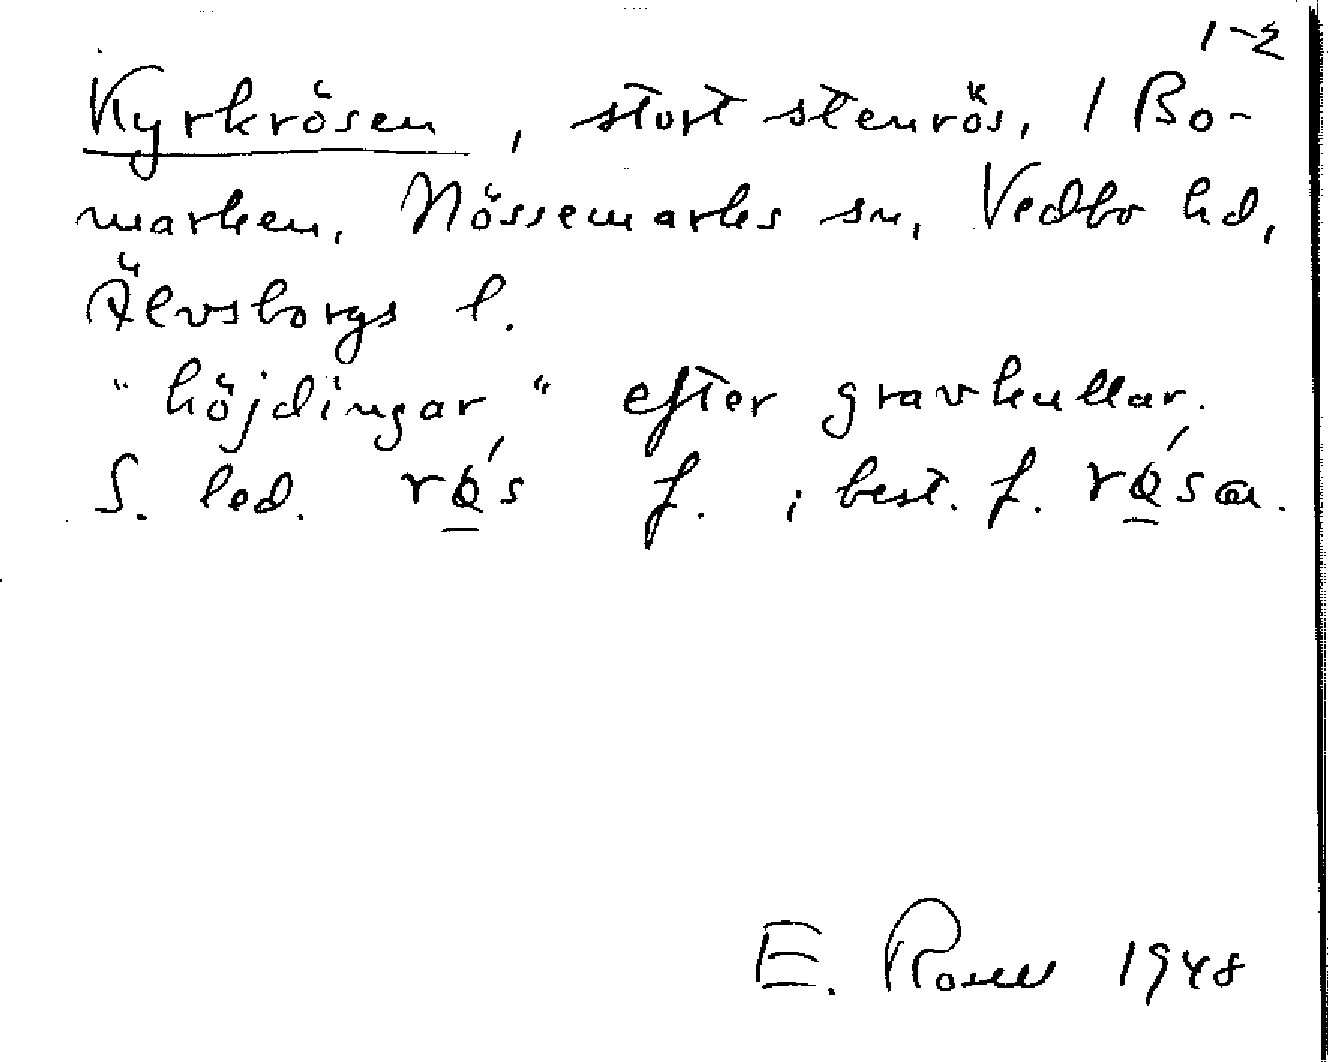 1-2
Kyrkrösen, stort stenrös, 1 Bo-
marken, Nössemarks sn, Vedbo hd,
Älvsborgs l.
"höjdingar" efter gravkullar.
S. led. f. ; best. f.
E. Rosell 1948